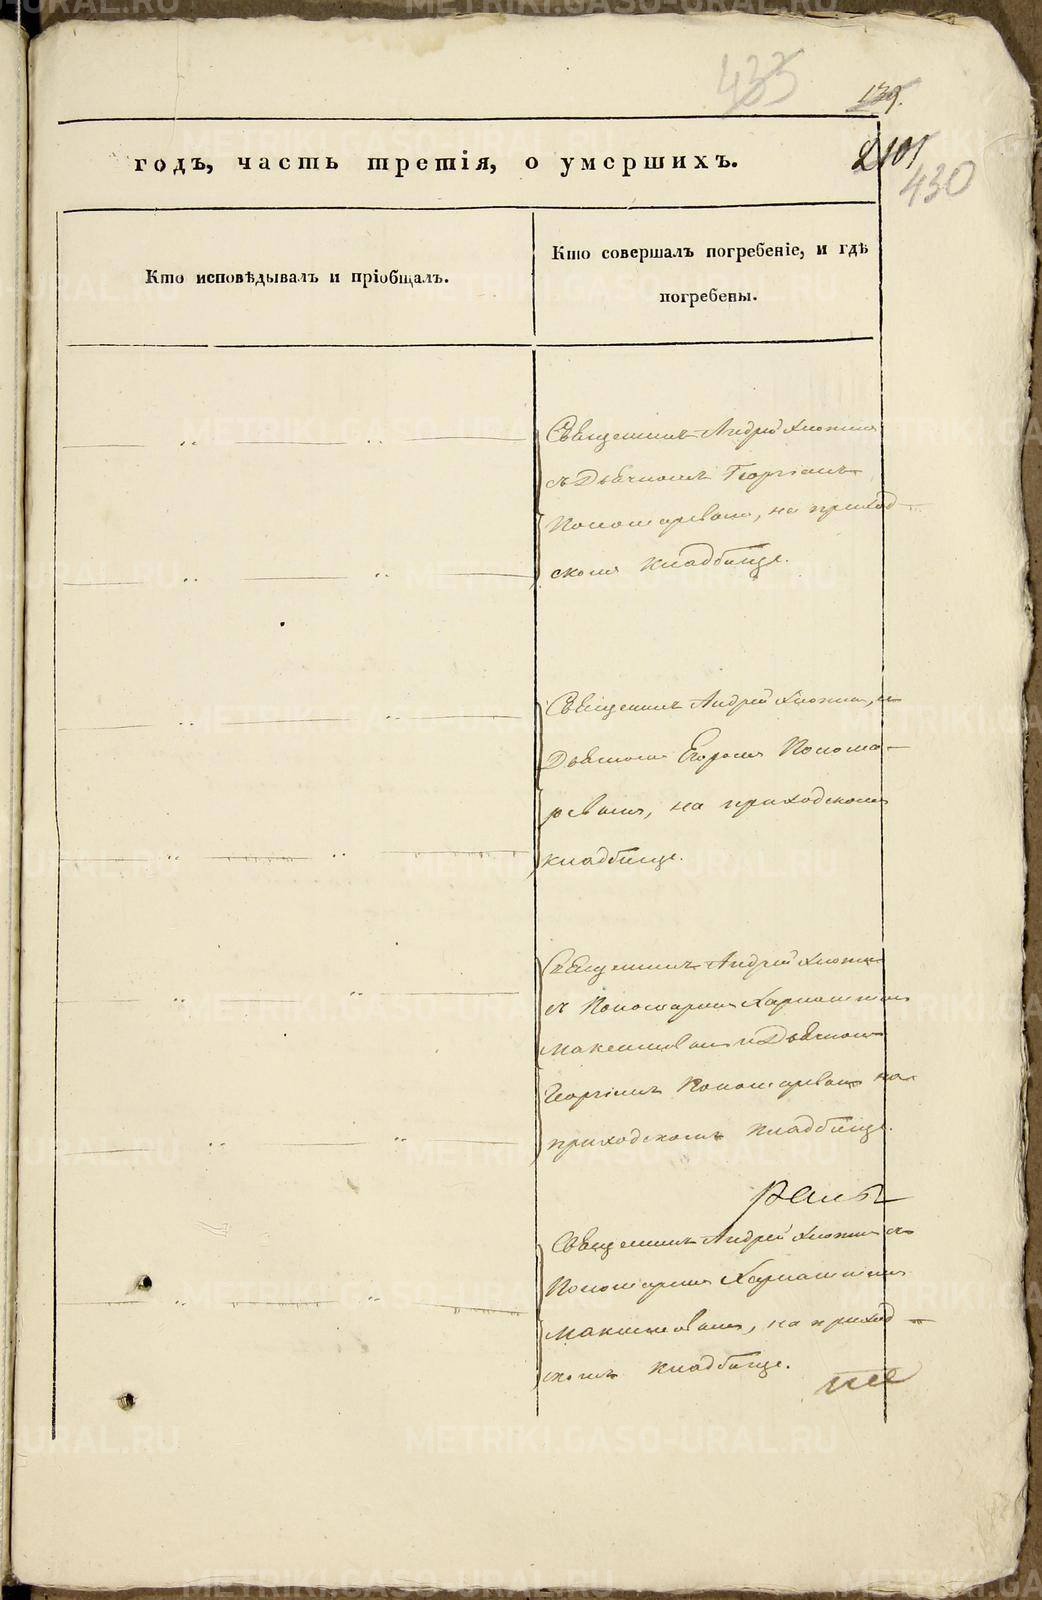 433
139.
годъ, часть третія, о умершихъ.
101
430
Кто исповѣдывалъ и пріобщалъ.
Кто совершалъ погребеніе, и гдѣ
погребены.
Священникъ Андрей
съ Дьячкомъ Георгіемъ
Пономаревымъ, на приход-
скомъ кладбище.
Священникъ Андрей и
Дьячкомъ Егоромъ Понома-
ревымъ, на приходскомъ
кладбище.
Священникъ Андрей
съ Пономаремъ Харлампіемъ
Максимовымъ и Дьячкомъ
Георгіемъ Пономаревымъ на
приходскомъ кладбище.
Священникъ Андрей съ
Пономаремъ Харлампіемъ
Максимовымъ, на приход-
скомъ кладбище.
METRIKI.GASO-URAL.RU